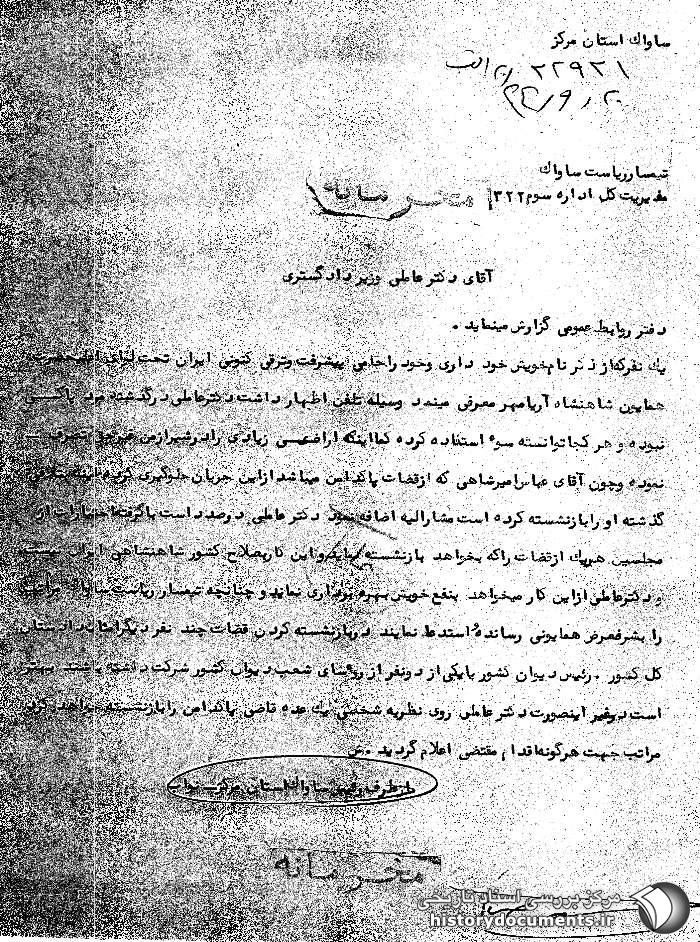 ساواك استان مركز
۲۲۹۲۱
تیمسار ریاست ساواك
مدیریت كل اداره سوم ۳۲۲
محرمانه
آقای دكتر عاملی وزیر دادگستری
دفتر روابط عمومی گزارش مینماید .
یك نفر كه از ذكر نام خویش خود داری وخود را حامی پیشرفت وترقی كنونی ایران تحت لوای اعلیحضرت
همایون شاهنشاه آریامهر معرفی مینمود وسیله تلفن اظهار داشت دكتر عاملی در گذشته مرد پاكی
نبوده و هر كجا توانسته سوء استفاده كرده كما اینكه اراضی زیادی را در شیراز من غیر حق تصرف
نموده وچون آقای عباس امیرشاهی كه از قضات پاكدامن میباشد از این جریان جلوگیری كرده
گذشته او را بازنشسته كرده است مشارالیه اضافه نمود دكتر عاملی درصدد است با گرفتن اختیارات از
مجلسین هر یك از قضات را كه بخواهد بازنشسته نماید و این كار بصلاح كشور شاهنشاهی ایران نیست
و دكتر عاملی از این كار میخواهد بنفع خویش بهره برداری نماید و چنانچه تیمسار ریاست ساواك مراتب
را بشرفعرض همایونی رسانده و استدعا نمایند در بازنشسته كردن قضات چند نفر دیگر امثال دادستان
كل كشور . رئیس دیوان كشور با یكی از دو نفر از روسای شعب دیوان كشور شركت داشته باشند بهتر
است در غیر اینصورت دكتر عاملی روی نظریه شخصی یك عده قاضی پاكدامن را بازنشسته خواهد كرد
مراتب جهت هرگونه اقدام مقتضی اعلام گردید .
از طرف رئیس ساواك استان مركز - نواب
محرمانه
مركز بررسی اسناد تاریخی
historydocuments.ir